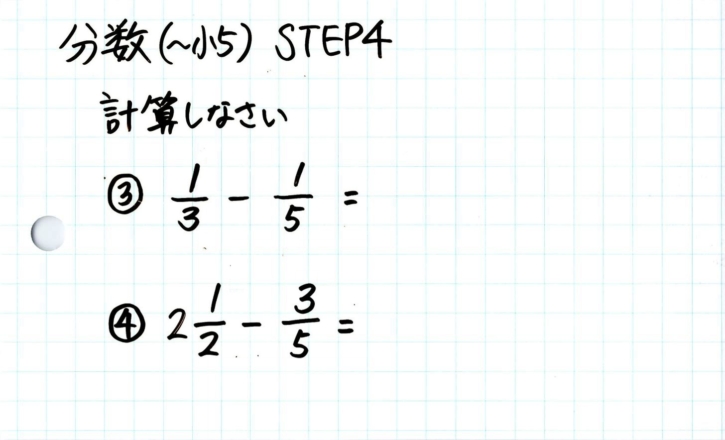 分数(~小5) STEP4
計算しなさい
③ 1/3 - 1/5 =
④ 2 1/2 - 3/5 =